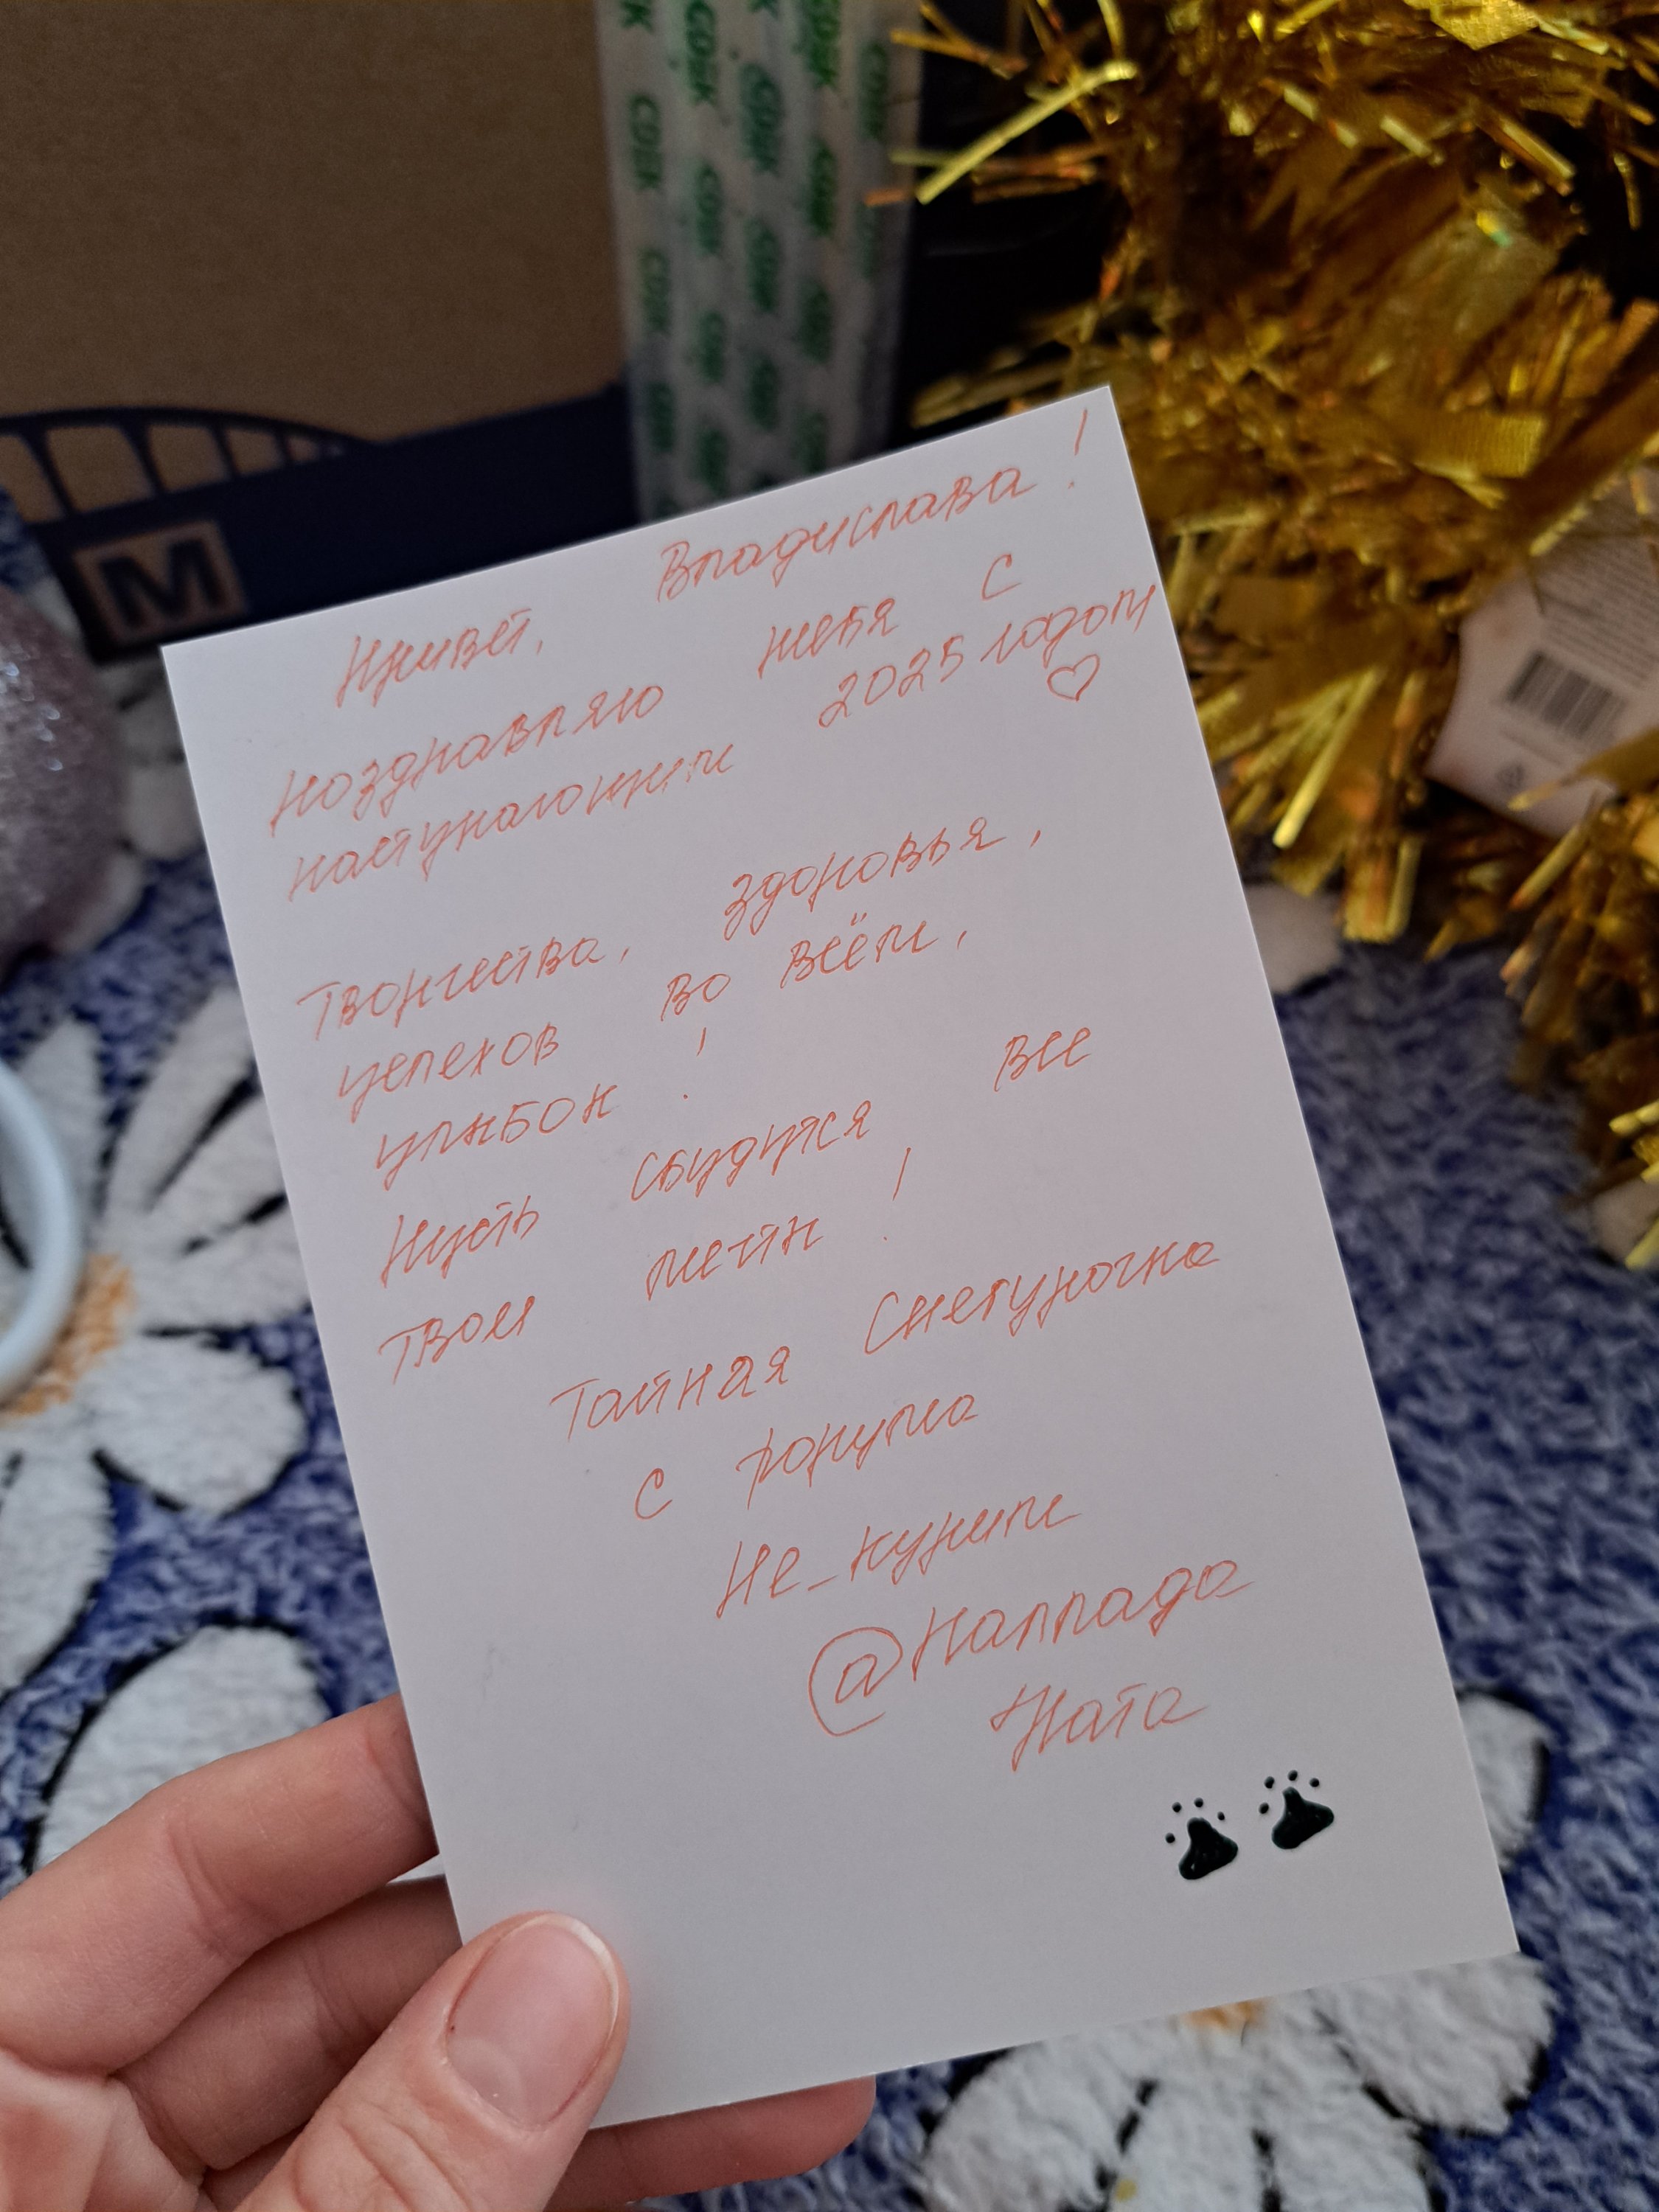 CDEK CDEK CDEK CDEK
M
Привет, Владислава!
поздравляю тебя с
наступающим 2025 годом
Творчества, здоровья,
успехов во всём,
улыбок!
Пусть сбудутся все
твои мечты!
Тайная Снегурочка
с форума
Не_курим
@Наллада
Ната